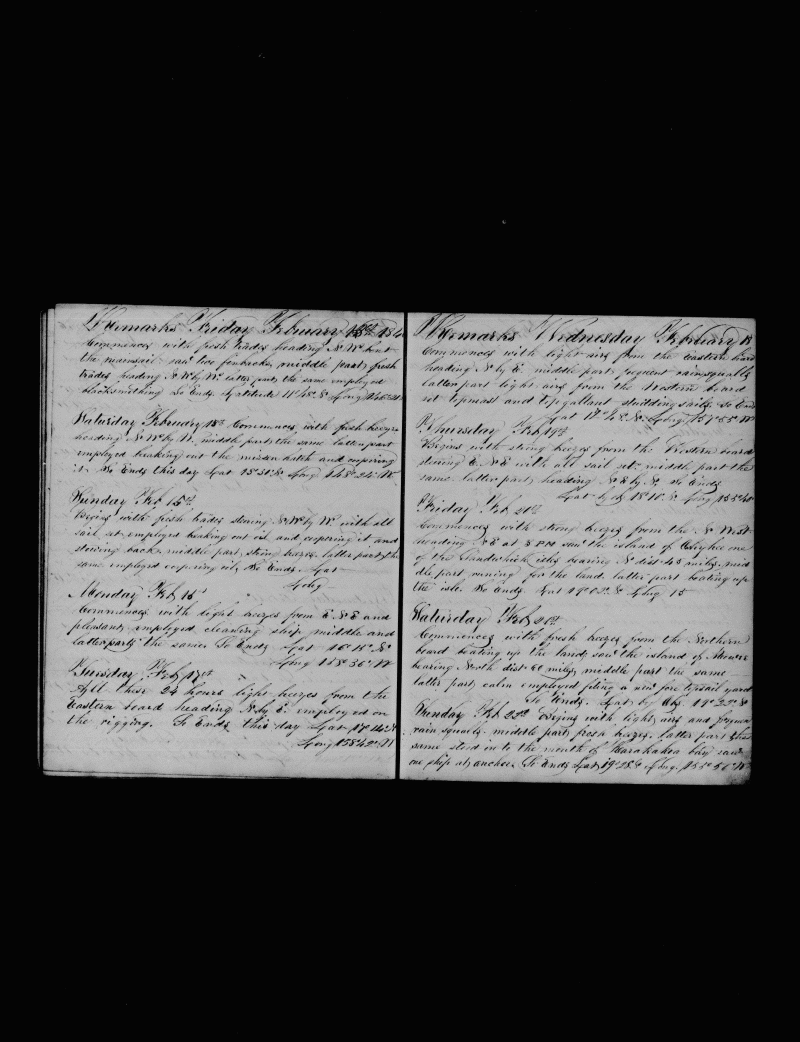 Remarks Friday February 13th 184
Commences with fresh trades heading N.W. bent
the mainsail saw two finbacks middle part fresh
trades heading N.W. by W. latter part the same employed
blacksmithing So Ends Latitude 11°48' N Long
Saturday February 14th Commences with fresh breezes
heading N.W. by N. middle part the same latter part
employed breaking out the mizen hatch and coopering
it So Ends this day Lat 13°31' N Long 148°24' W
Sunday Feb 15th
Begins with fresh trades steering N.W. by W. with all
sail set employed breaking out oil and coopering it and
stowing back middle part strong breezes latter part the
same employed coopering oil So Ends Lat
Long
Monday Feb 16th
Commences with light breezes from E.N.E and
pleasant employed cleaning ship middle and
latter parts the same So Ends Lat 16°15' N
Long 153°36' W
Tuesday Feb 17th
All these 24 hours light breezes from the
Eastern board heading N. by E. employed on
the rigging. So Ends this day Lat 17°14' N
Long 158°42' W
Remarks Wednesday February 18
Commences with light airs from the eastern board
heading N. by E. middle part frequent rain squalls
latter part light airs from the Western board
set topmast and top gallant studding sails So Ends
Lat 17°42' N Long 157°55' W
Thursday Feb 19th
Begins with strong breezes from the Western board
steering E.N.E with all sail set middle part the
same latter part heading N.E by N So Ends
Lat by 18°11' N Long 155°45'
Friday Feb 20th
Commences with strong breezes from the N. West
heading N.E at 5 PM saw the island of Owyhee one
of the Sandwich isles bearing N dist 45 miles mid
dle part running for the land latter part beating up
the isle So Ends Lat 19°02' N Long 15
Saturday Feb 21st
Commences with fresh breezes from the Northern
board beating up the land saw the island of Mowee
bearing North dist 60 miles middle part the same
latter part calm employed fitting a new fore topsail yard
So Ends Lat by Obs 19°22' N
Sunday Feb 22nd Begins with light airs and frequent
rain squalls middle part fresh breezes latter part the
same stood in to the mouth of Karakakoa bay saw
one ship at anchor So Ends Lat 19°28' N Long. 155°56' W